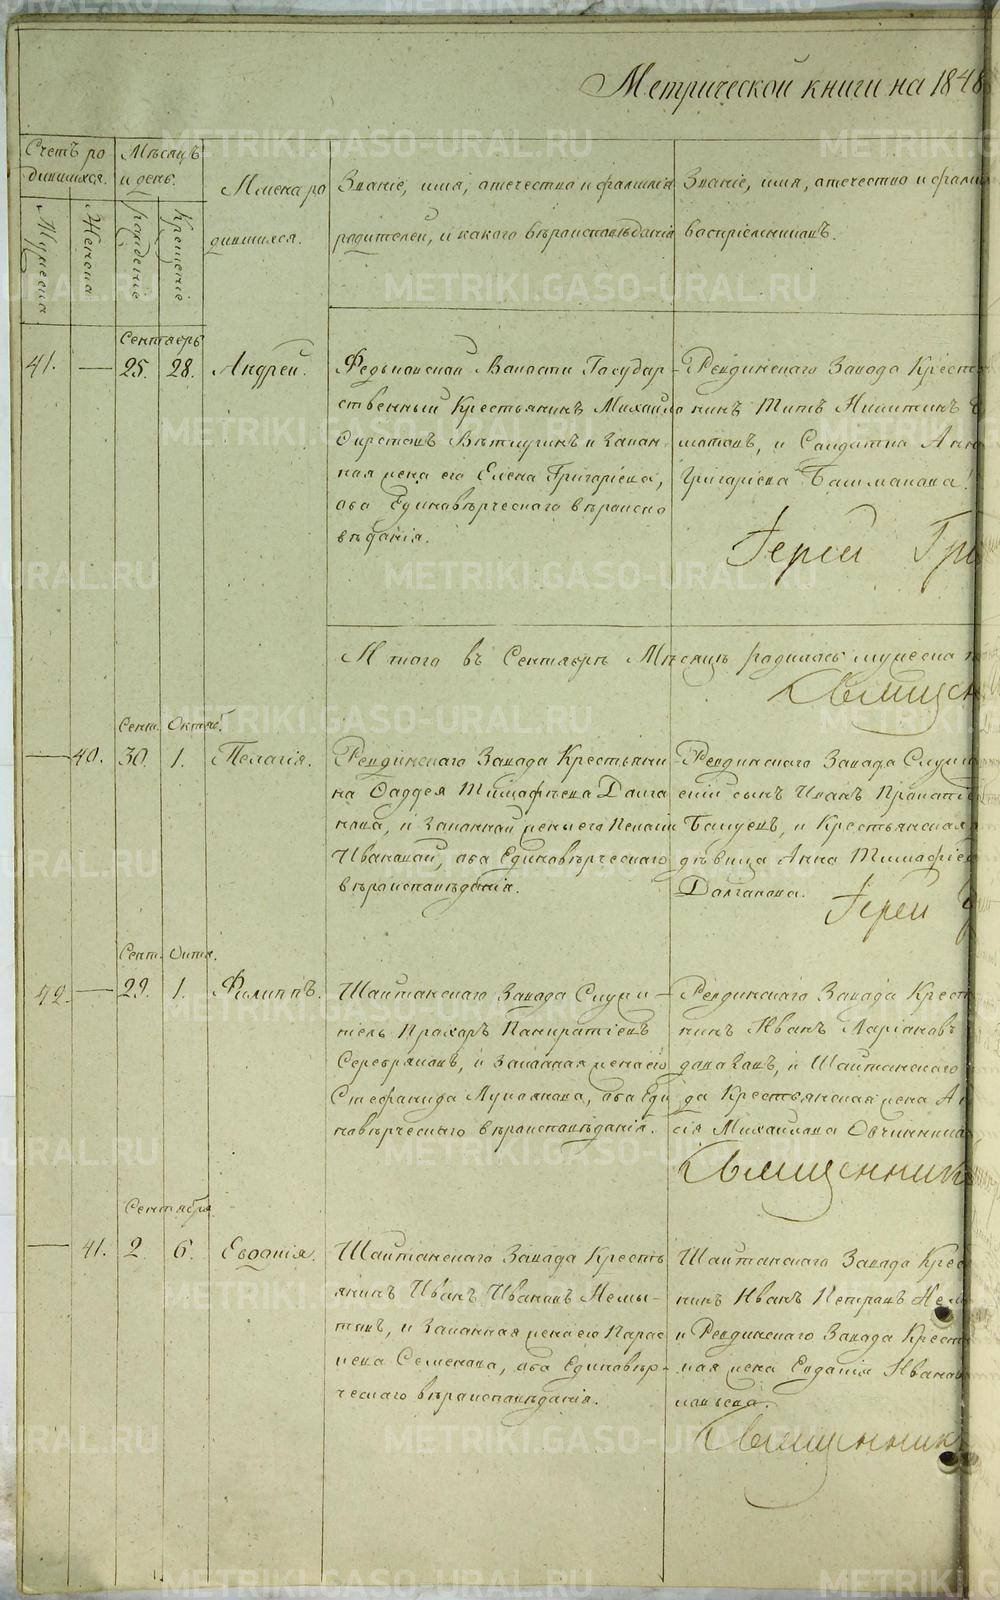 Метрической книги на 1848
Счетъ ро
дившихся.
Мѣсяцъ
и день.
Мужеска
Женска
рожденіе
Крещеніе
Имена ро
дившихся.
Званіе, имя, отечество и фамилія
родителей, и какого вѣроисповѣданія
Званіе, имя, отечество и фамил
воспріемниковъ.
Сентябрь
41. — 25. 28. Андрей.
Государ-
ственный Крестьянинъ Михайло
и Закон-
ная жена его Елена Григоріева,
оба Единовѣрческаго вѣроиспо
вѣданія.
Ревдинскаго Завода Крестья
нинъ Титъ Никитинъ
и Солдатка Анна
Григоріева Башмакова.
Іерей Гри
Итого въ Сентябрѣ Мѣсяцѣ родилось мужеска
Священ
Сент. Октяб.
— 40. 30. 1. Пелагія.
Ревдинскаго Завода Крестьяни
на Фаддея Тимофѣева Долга
нова, и Законной жены его Пелагіи
Ивановой, оба Единовѣрческаго
вѣроисповѣданія.
Ревдинскаго Завода Служи
скій сынъ Иванъ
и Крестьянская
дѣвица Анна Тимофіев
Долганова.
Іерей
Сент. Октя.
42. — 29. 1. Филиппъ.
Шайтанскаго Завода Служи-
тель Прохоръ Панкратіевъ
Серебряковъ, и Законная жена его
Стефанида Лукоянова, оба Еди
новѣрческаго вѣроисповѣданія.
Ревдинскаго Завода Крест
нинъ Иванъ Ларіоновъ
и Шайтанскаго
да Крестьянская жена
сія Михайлова Овчинник
Священник
Сентября
— 41. 2. 6. Евдокія.
Шайтанскаго Завода Кресть
янинъ Иванъ Ивановъ Немы-
товъ, и Законная жена его Парас
кева Семенова, оба Единовѣр-
ческаго вѣроисповѣданія.
Шайтанскаго Завода Крес
нинъ Иванъ Петровъ Немы
и Ревдинскаго Завода Кресть
ская жена Евдокія Иванов
Священник
METRIKI.GASO-URAL.RU